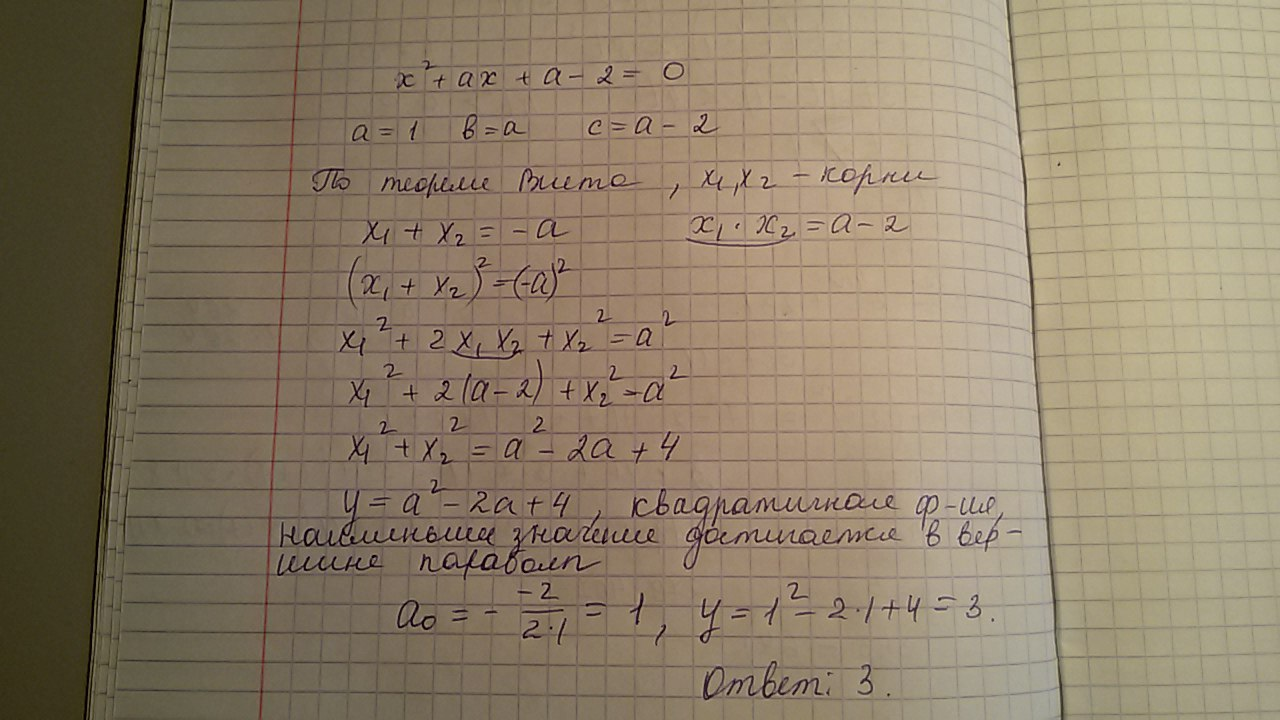 x² + ax + a - 2 = 0
a = 1 в = a c = a - 2
По теореме Виета, x₁, x₂ - корни
x₁ + x₂ = -a x₁ · x₂ = a - 2
(x₁ + x₂)² = (-a)²
x₁² + 2x₁x₂ + x₂² = a²
x₁² + 2(a - 2) + x₂² = a²
x₁² + x₂² = a² - 2a + 4
y = a² - 2a + 4, квадратичная ф-ия,
наименьшее значение достигается в вер-
шине параболы
a₀ = - \frac{-2}{2·1} = 1, y = 1² - 2·1 + 4 = 3.
Ответ: 3.